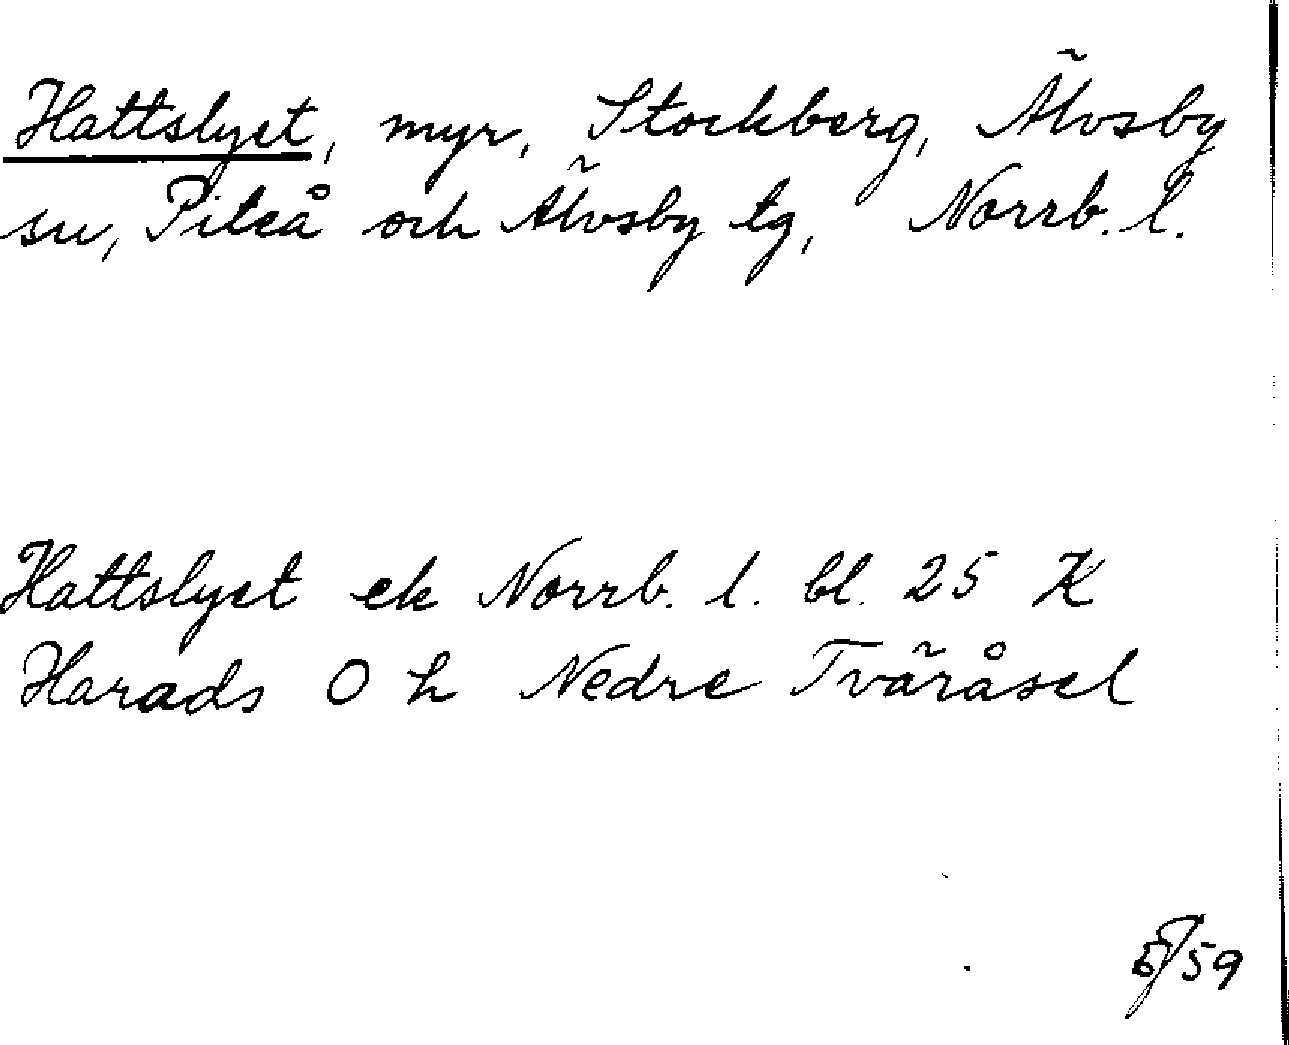 Hattslyet, myr, Stockberg, Älvsby
sn, Piteå och Älvsby tg, Norrb. l.
Hattslyet ek Norrb. l. bl. 25 K
Harads O h Nedre Tväråsel
/59